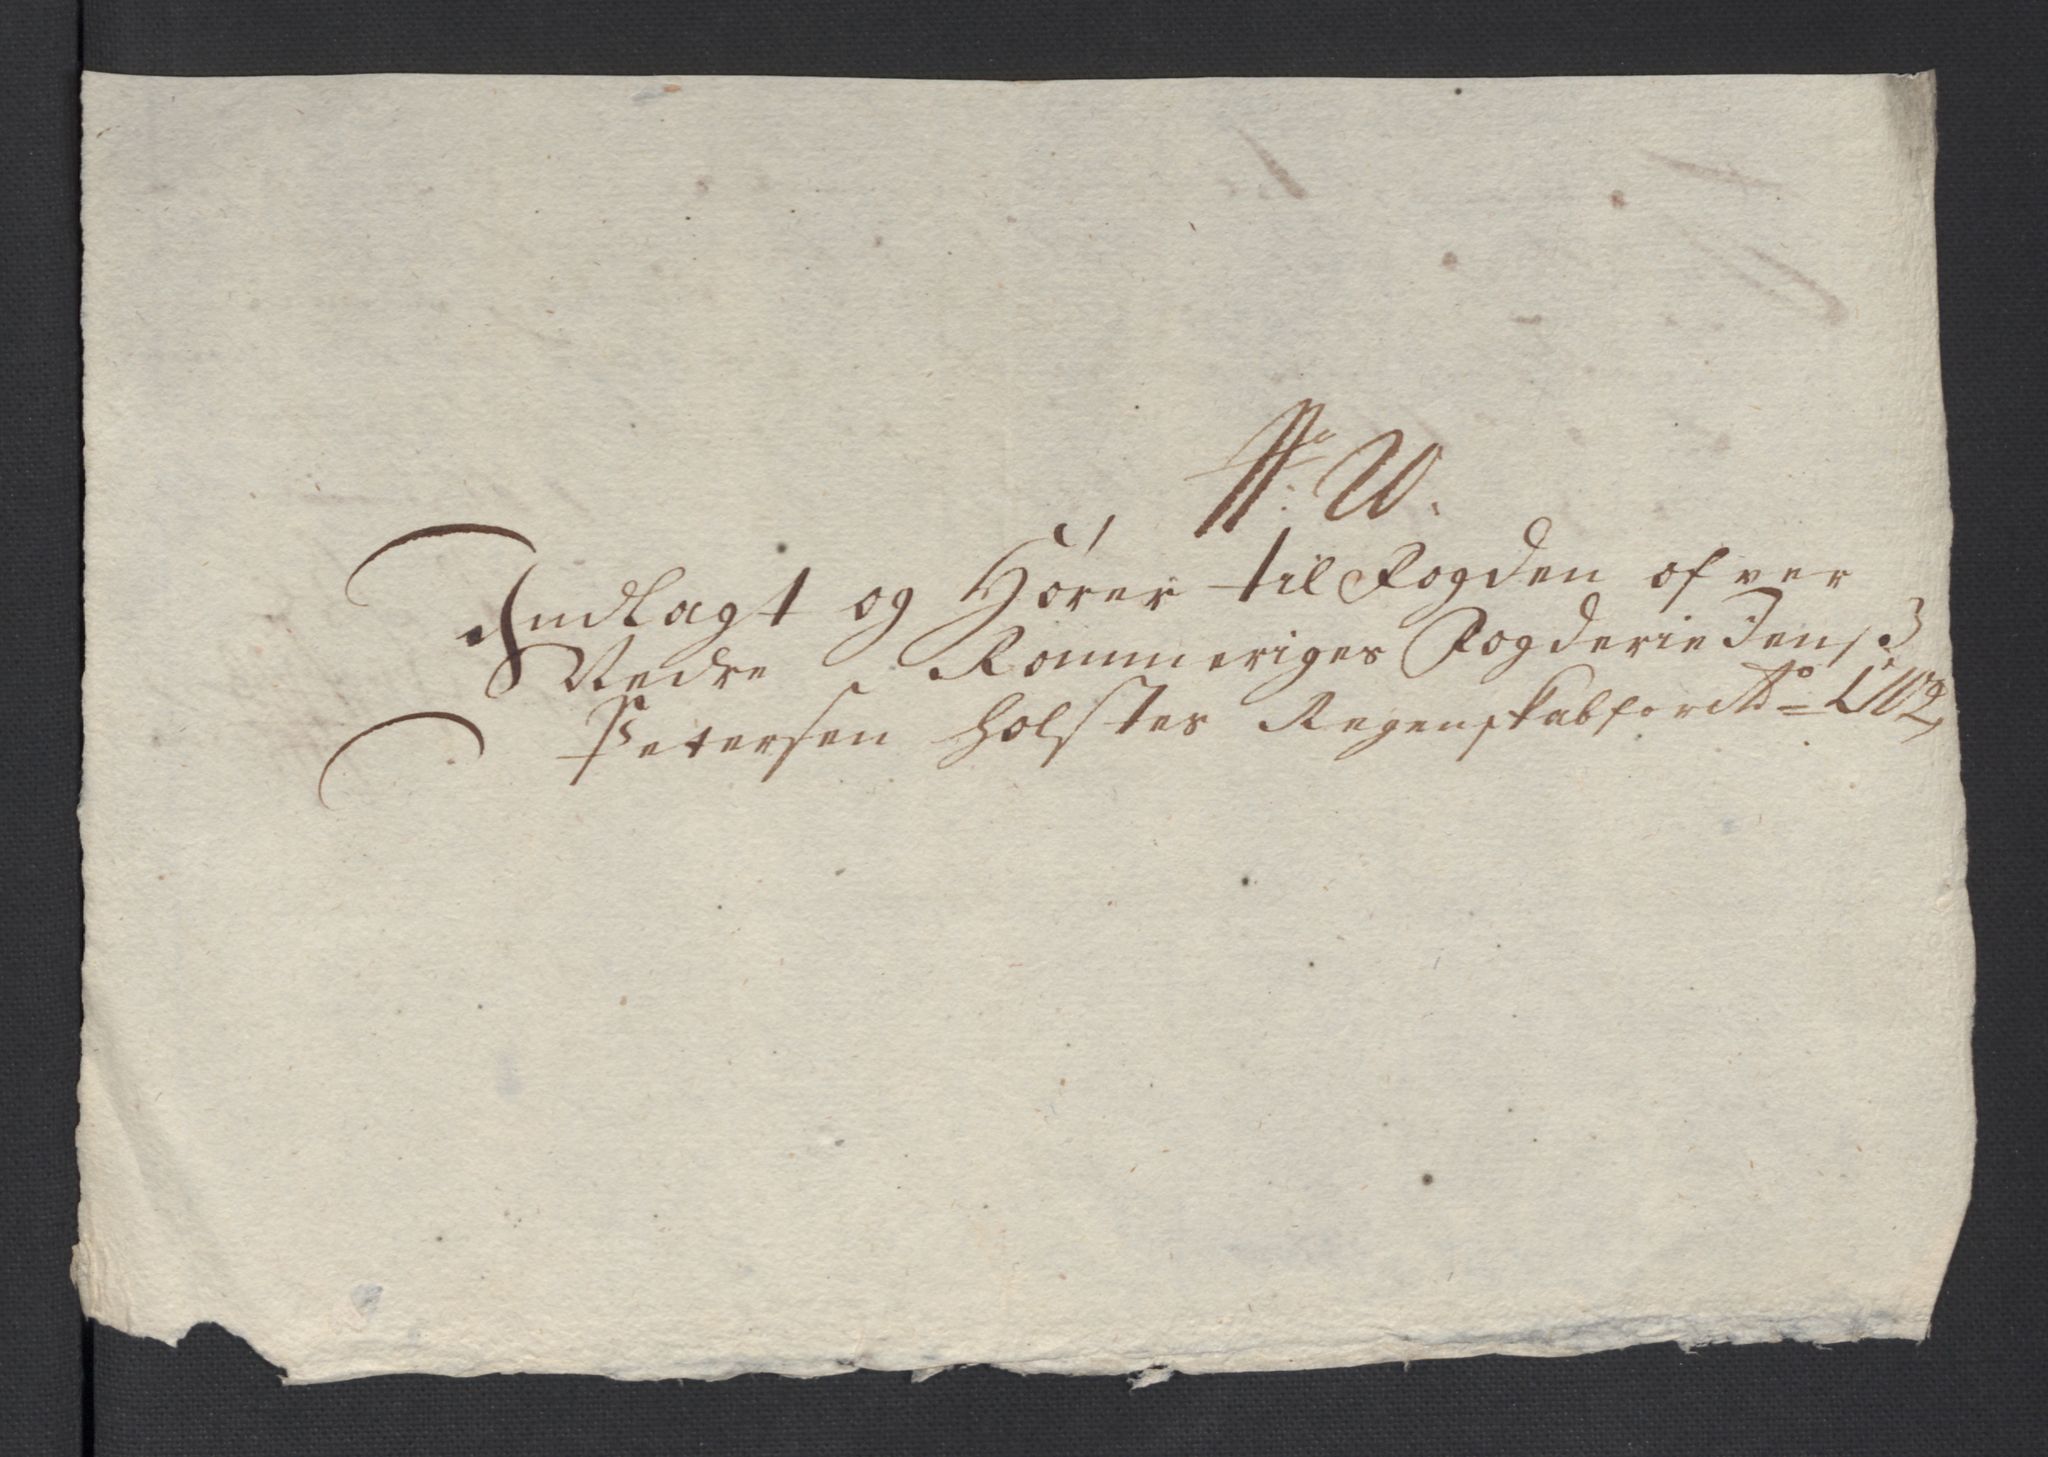 No: W.
Indlagt og Hörer til Fogden ofver
Nedre Rommeriges Fogderie Jenſ:
Petersen Holstes Regenskab for Ao = 1702